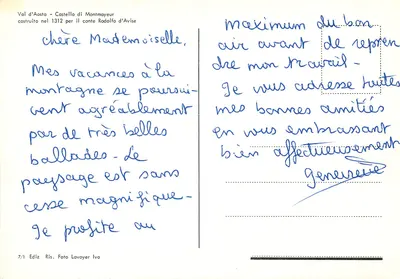 Val d'Aosta - Castello di Montmayeur
costruito nel 1312 per il conte Rodolfo d'Avise
chère Mademoiselle,
Mes vacances à la
montagne se poursui-
vent agréablement
par de très belles
ballades. Le
paysage est sans
cesse magnifique -
Je profite au
maximum du bon
air avant de repren
dre mon travail -
Je vous adresse toutes
mes bonnes amitiés
en vous embrassant
bien affectueusement
Geneviève
7/1 Ediz. Ris. Foto Lavoyer Ivo